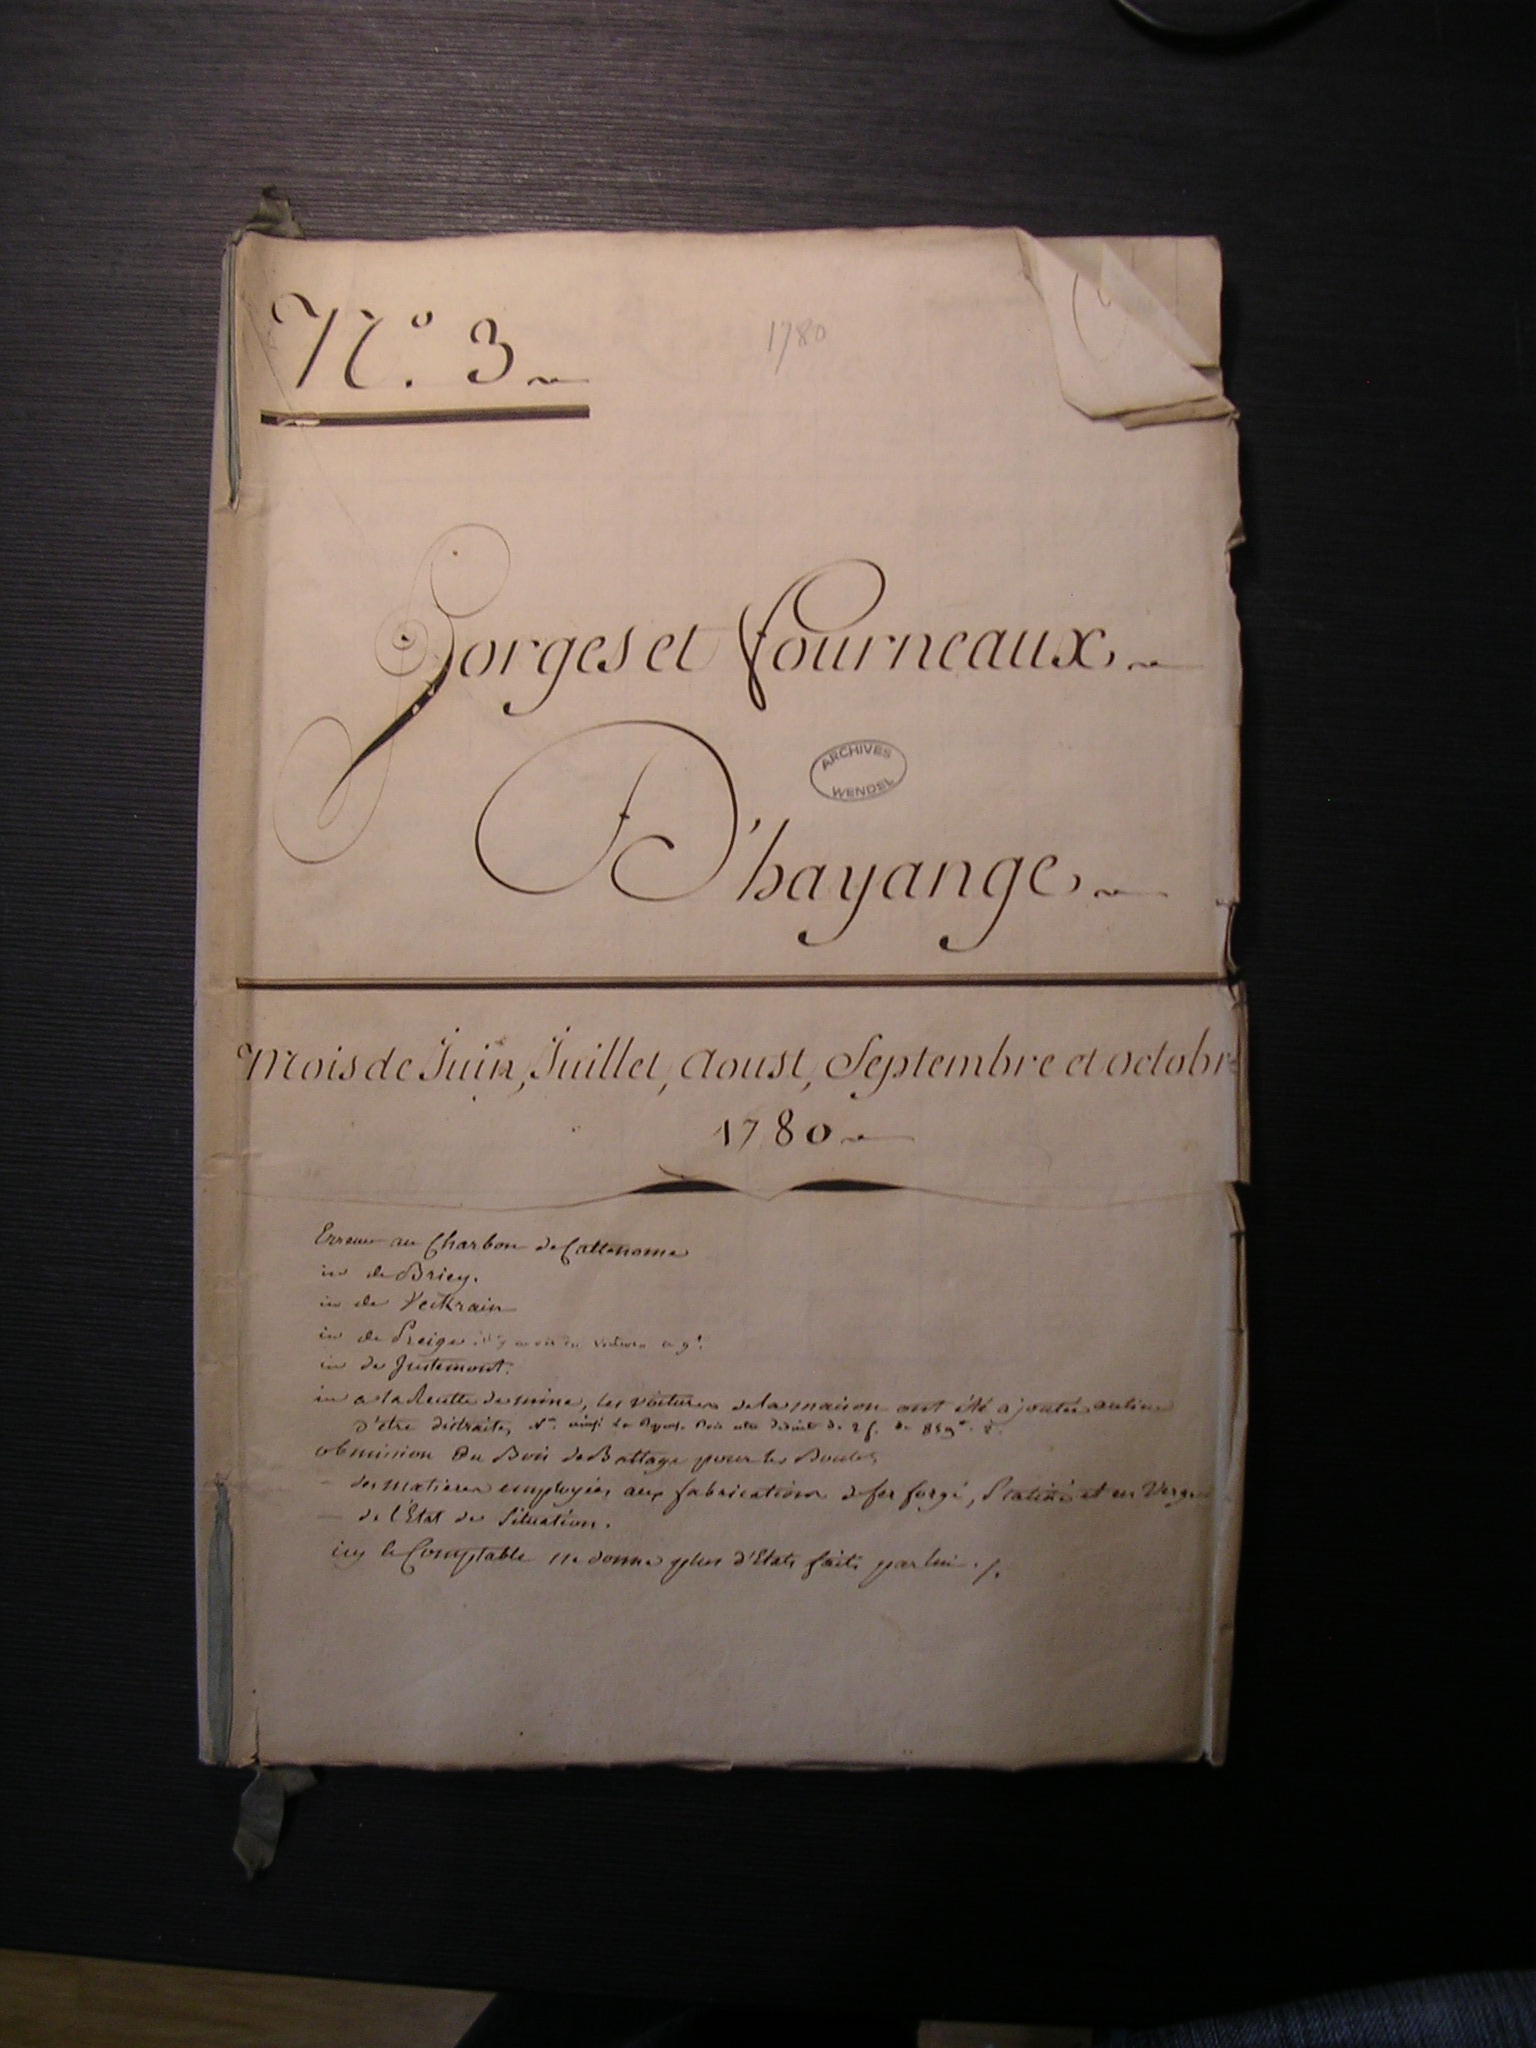 N.º 3
1780
Forges et fourneaux,
ARCHIVES
WENDEL
D'hayange,
Mois de Juin, Juillet, Aoust, Septembre et octobre
1780
Erreur au Charbon de Cattenome
de Briey.
de Veckrain
de Preige
de Justemont.
a la Recette de mine, les voitures de la maison ont été ajoutés au lieu
d'être distraits,
obmission du Bois de Battage pour les Boules
des matieres employées aux fabrications de fer forgé, Platiné et en Verges
de l'Etat de Situation.
icy le Comptable ne donne plus d'Etats faits par lui ./.